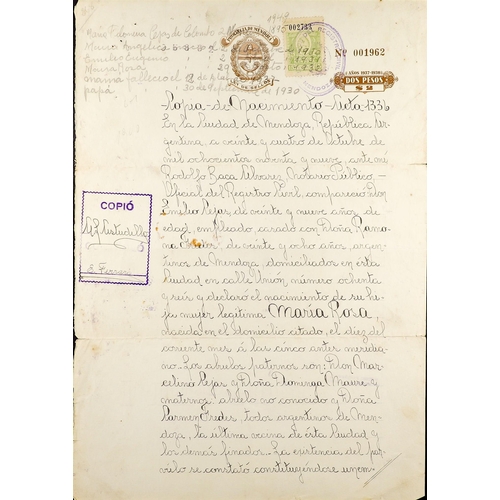 002733
Nº 001962
AÑOS 1937-1938
DOS PESOS
1930
Copia de Nacimiento - Acta 1336
En la Ciudad de Mendoza, República Ar-
gentina, a veinte y cuatro de Octubre de
mil ochocientos noventa y nueve, ante mí
Rodolfo Baca Alvarez, Notario Público,
Oficial del Registro Civil, compareció Don
Emilio Lejas, de veinte y nueve años de
edad, empleado, casado con Doña Ramo-
na, de veinte y ocho años, argen-
tinos de Mendoza, domiciliados en esta
Ciudad en calle Unión, número ochenta
y seis y declaró el nacimiento de su hi-
ja mujer legítima María Rosa,
nacida en el domicilio citado, el diez del
corriente mes á las cinco ante meredia-
no. Los abuelos paternos son: Don Mar-
celino Lejas y Doña Dominga Maure y
maternos, abuelo no conocido y Doña
Carmen, todos argentinos de Men-
doza, la última vecina de esta Ciudad y
los demás finados. La existencia del pár-
vulo se constató constituyéndose unem-
COPIÓ